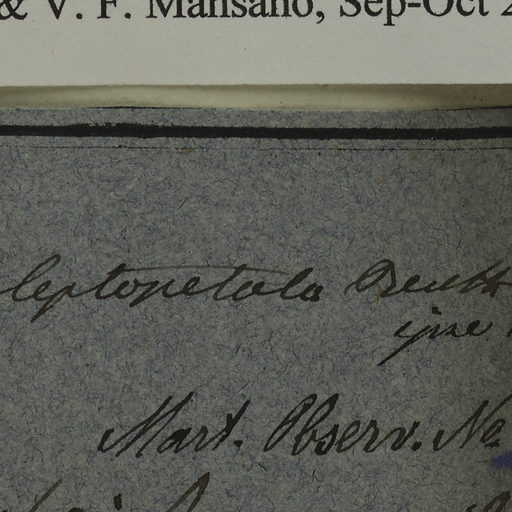 & V. F. Mansano, Sep-Oct 2
leptopetala Benth
ipse
Mart. Observ. No